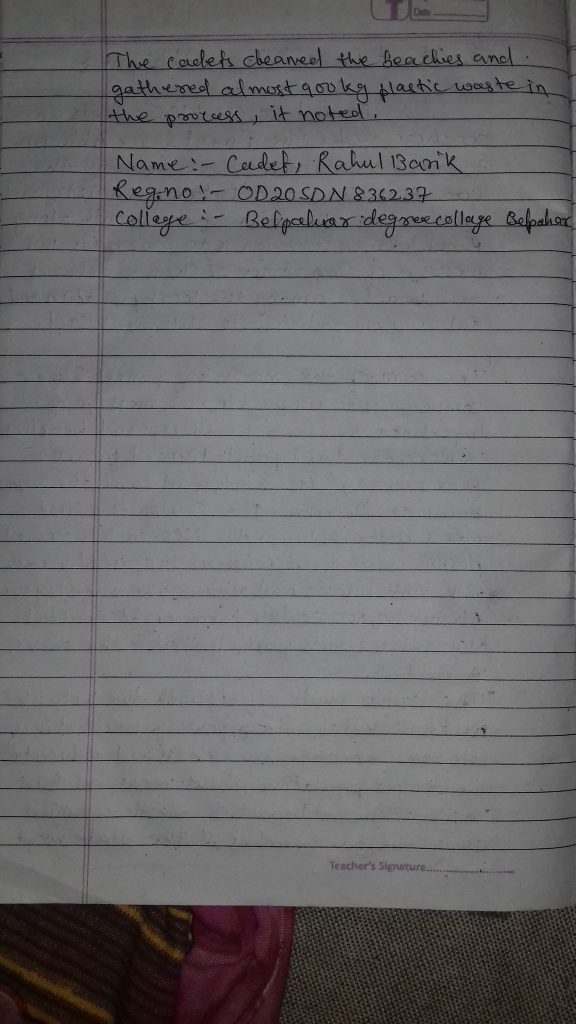 Date
The cadets cleaned the beaches and
gathered almost 900 kg plastic waste in
the process, it noted.
Name :- Cadet, Rahul Barik
Reg.no :- OD20SDN836237
Collage :- Belpahar degree collage Belpahar
Teacher's Signature